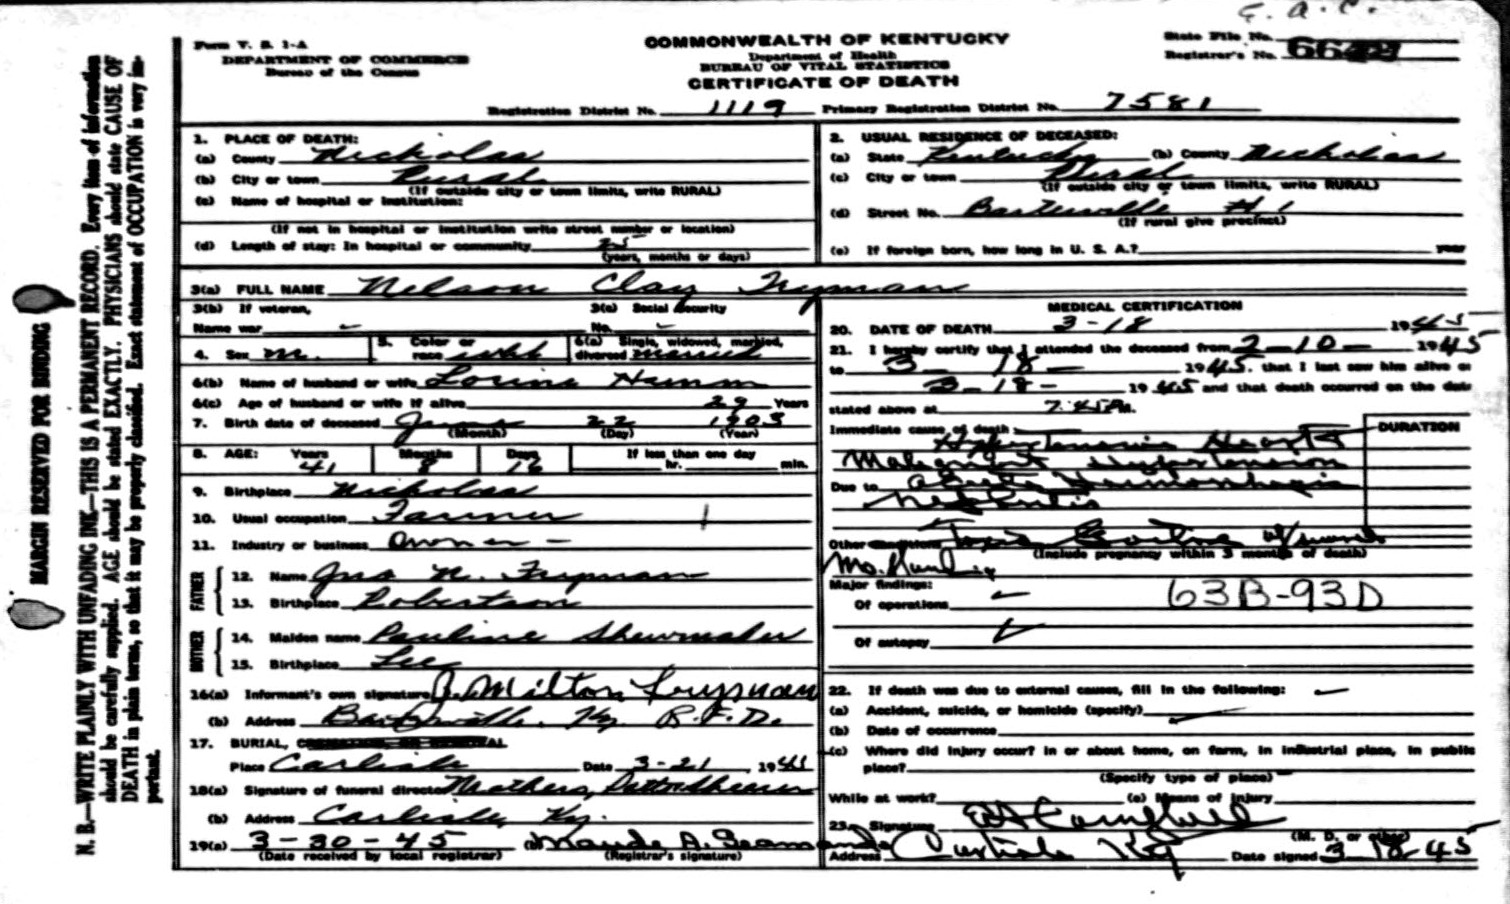 E. A. C.
Form V. S. 1-A
DEPARTMENT OF COMMERCE
Bureau of the Census
COMMONWEALTH OF KENTUCKY
Department of Health
BUREAU OF VITAL STATISTICS
CERTIFICATE OF DEATH
State File No.
Registrar's No. 6642
Registration District No. 1119 Primary Registration District No. 7581
MARGIN RESERVED FOR BINDING
N. B.—WRITE PLAINLY WITH UNFADING INK—THIS IS A PERMANENT RECORD. Every item of information
should be carefully supplied. AGE should be stated EXACTLY. PHYSICIANS should state CAUSE OF
DEATH in plain terms, so that it may be properly classified. Exact statement of OCCUPATION is very im-
portant.
1. PLACE OF DEATH:
(a) County Nicholas
(b) City or town Rural
(If outside city or town limits, write RURAL)
(c) Name of hospital or institution:
(If not in hospital or institution write street number or location)
(d) Length of stay: In hospital or community
(years, months or days)
2. USUAL RESIDENCE OF DECEASED:
(a) State Kentucky (b) County Nicholas
(c) City or town Rural
(If outside city or town limits, write RURAL)
(d) Street No. # 1
(If rural give precinct)
(e) If foreign born, how long in U. S. A.? year
3(a) FULL NAME Nelson Clay Fryman
3(b) If veteran, 3(c) Social Security
Name war No.
4. Sex m. 5. Color or race 6(a) Single, widowed, married, divorced married
6(b) Name of husband or wife Hamm
6(c) Age of husband or wife if alive 29 Years
7. Birth date of deceased 22 1903
(Month) (Day) (Year)
8. AGE: Years Months Days If less than one day
41 8 hr. min.
9. Birthplace Nicholas
10. Usual occupation Farmer
11. Industry or business Owner -
FATHER
12. Name Jno N. Fryman
13. Birthplace Robertson
MOTHER
14. Maiden name Pauline Shewmaker
15. Birthplace Lee
16(a) Informant's own signature J. Milton Fryman
(b) Address Ky. R.F.D.
17. BURIAL, CREMATION, OR REMOVAL
Place Carlisle Date 3-21, 19
18(a) Signature of funeral director Mathers,
(b) Address Carlisle, Ky.
19(a) 3-30-45 (b) Maude A.
(Date received by local registrar) (Registrar's signature)
MEDICAL CERTIFICATION
20. DATE OF DEATH 3-18 1945
21. I hereby certify that I attended the deceased from 2-10- 1945
to 3 18 - 1945. that I last saw him alive on
3-18- 1945 and that death occurred on the date
stated above at 7:45 P.M.
Immediate cause of death DURATION
Hypertensive Heart
Malignant Hypertension
Due to Hemorrhagic
Nephritis
Other conditions Toxic
(Include pregnancy within 3 months of death)
Major findings:
Of operations 63B-93D
Of autopsy
22. If death was due to external causes, fill in the following:
(a) Accident, suicide, or homicide (specify)
(b) Date of occurrence
(c) Where did injury occur? In or about home, on farm, in industrial place, in public
place?
(Specify type of place)
While at work? (e) Means of injury
23. Signature Campbell
(M. D. or other)
Address Carlisle Ky Date signed 3 18-45